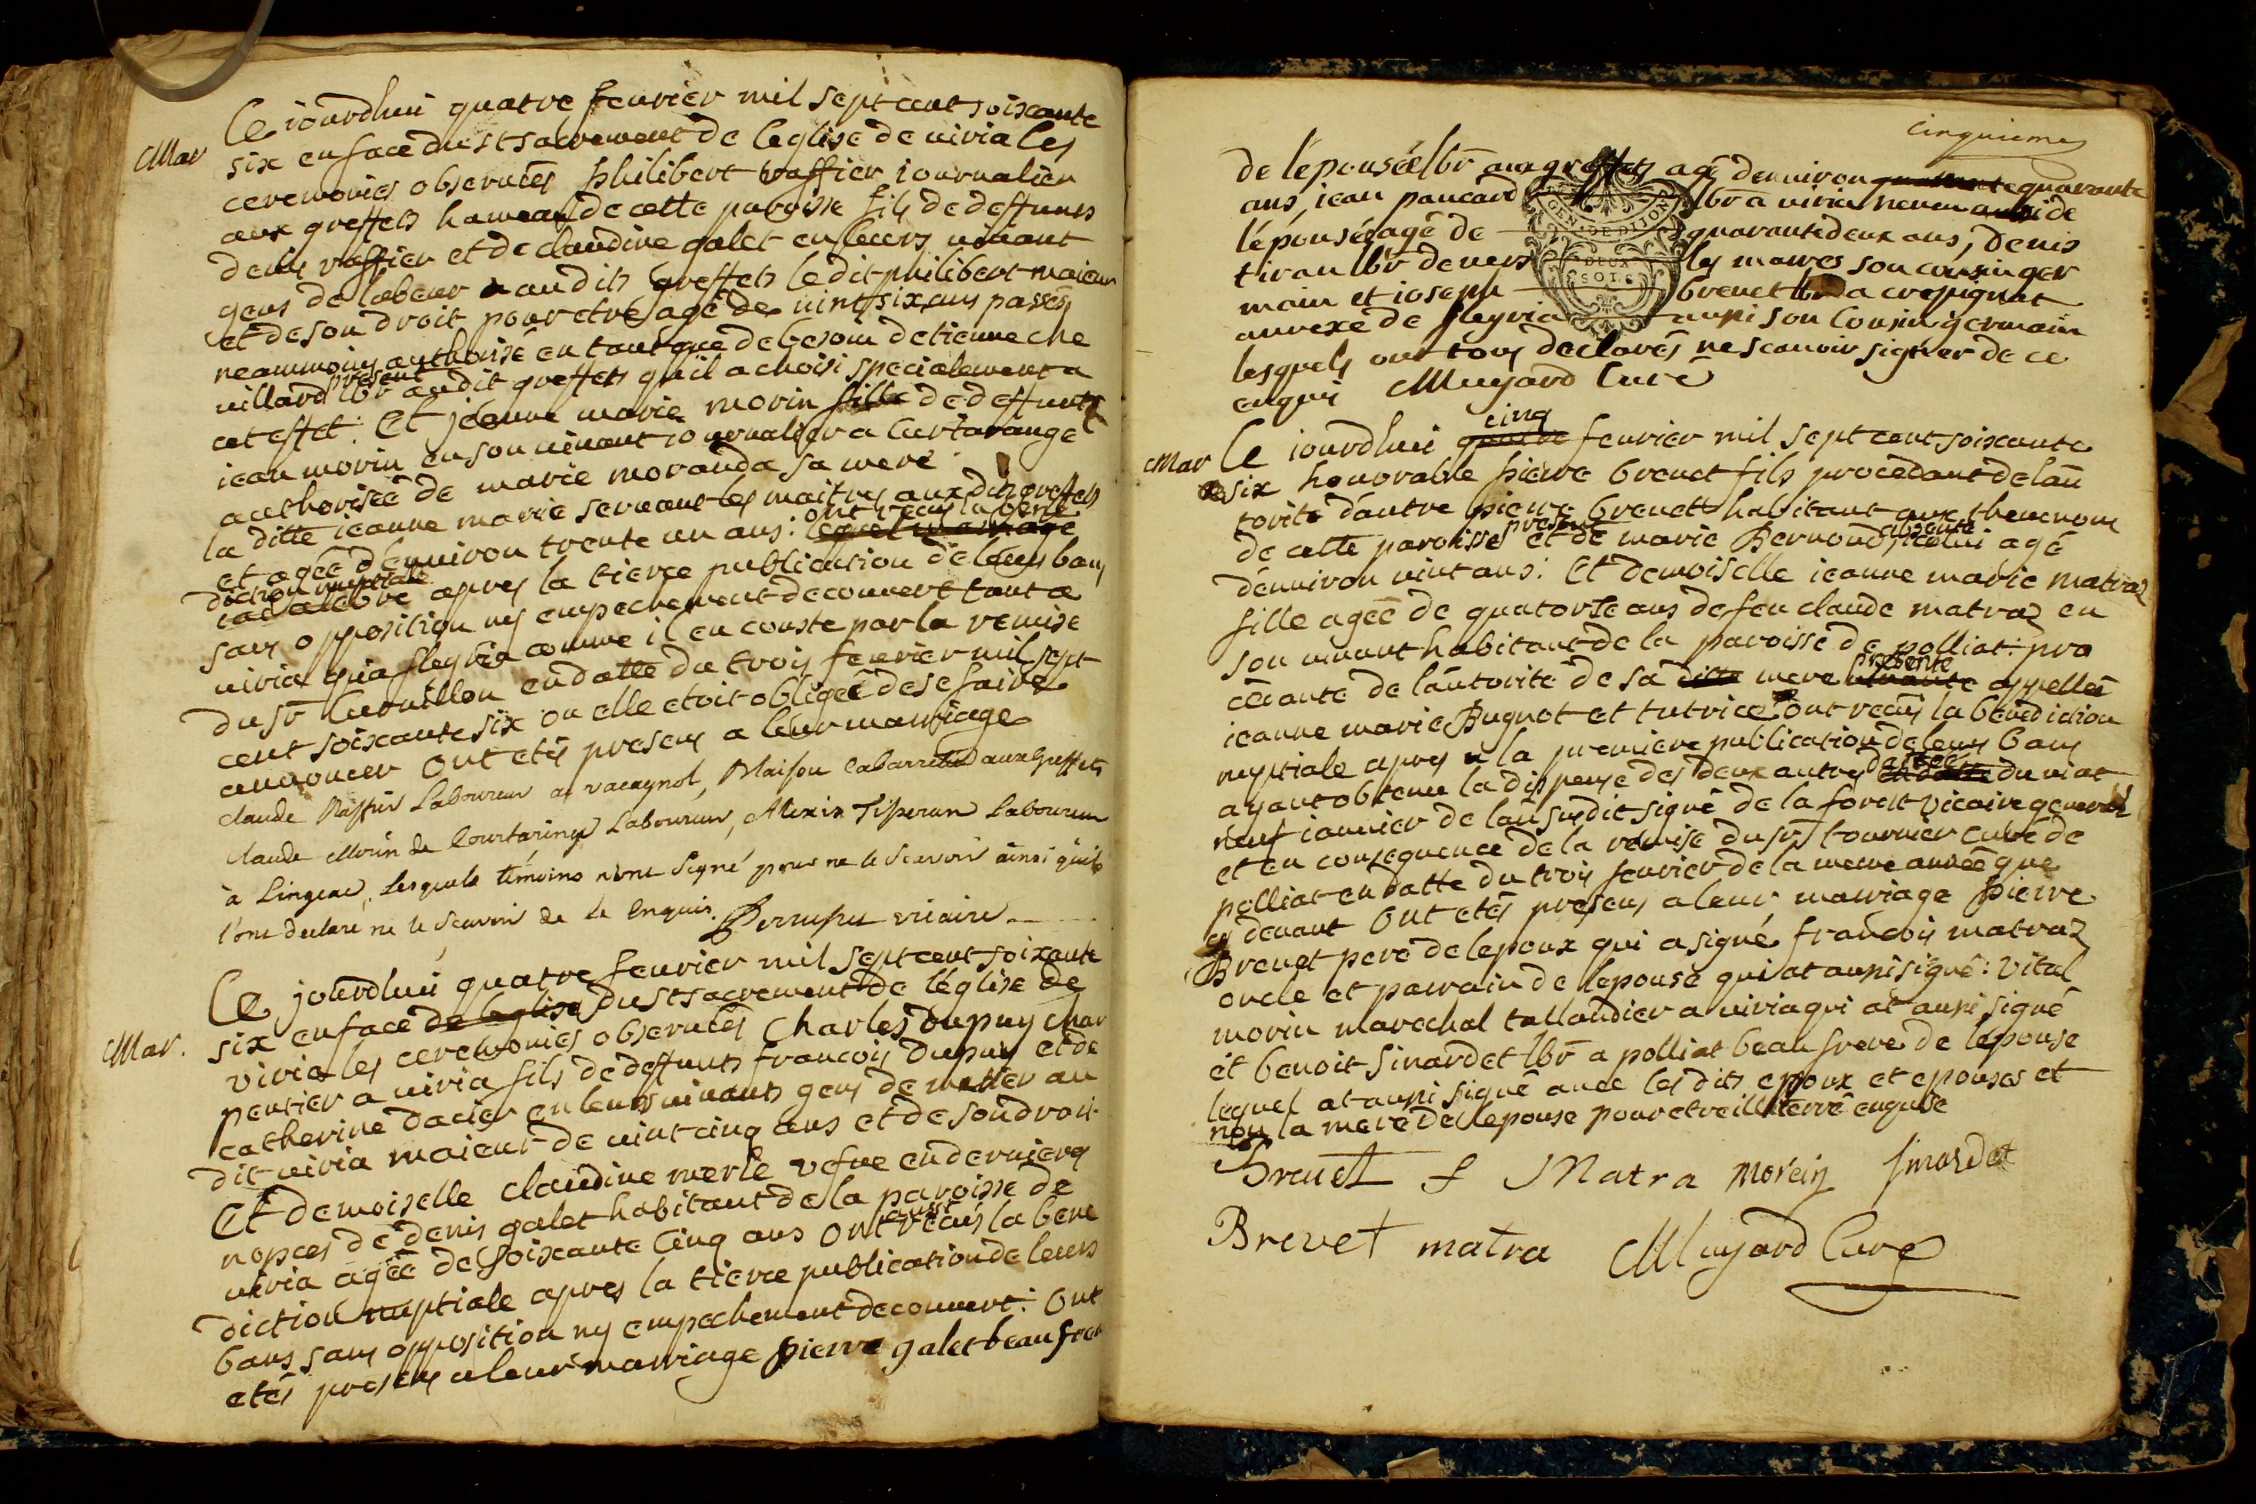 Ce iourdhui quatre feurier mil sept cent soixante
Mar six en face du st sacrement de leglise de uiria les
ceremonies obseruées philibert raffier iournalier
aux greffets hameau de cette paroisse fils de deffunts
denis raffier et de claudine galet en leurs uiuant
gens de labeur audits greffets ledit philibert maieur
et de son droit pour etre agé de uint six ans passés
neammoins authorisé en tant que de besoin detienne che
uillard present lbr audit greffets qu'il a choisi specialement a
cet effet. Et jeanne marie morin fille de deffunt
iean morin en son uiuant iournalier a Curtarange
authorisée de marie moranda sa mere
la ditte ieanne marie seruant les maitres auxdits greffets
et agée denuiron trente un ans: ont reçus la bene
diction nuptiale apres la tierce publication de leurs bans
sans opposition ny empechement decouuert tant a
uiria qu'a fleyria comme il en conste par la remise
du sr Cuouillon en datte du trois feurier mil sept
cent soixante six ou elle etoit obligeé de se faire
annoncer ont etés presens a leur marriage
claude Raffier Laboureur a vacagnol, Blaison Cabarretier aux Greffets
claude Morin de Courtaringe Laboureur, Alexis Tisseran Laboureur
à Lingeac, Lesquels temoins n'ont signé pour ne le Scavoir ainsi qu'ils
l'ont declaré ne le Scavoir de ce Enquis. vicaire
Ce jourdhui quatre feurier mil sept cent soixante
Mar. six en face de leglise du st sacrement de l'église de
viria les ceremonies obseruées Charles dupuy char
pentier a uiria fils de deffunts francois dupuy et de
catherine dacier en leurs uiuants gens de metier au
dit uiria maieur de uint cinq ans et de son droit
Et demoiselle claudine merle vefue en dernieres
nopces de denis galet habitant de la paroisse de
uiria agée de soixante cinq ans ont aussi reçus la bene
diction nuptiale apres la tierce publication de leurs
bans sans opposition ny empechement decouuert: Ont
etés presens a leur marriage pierre galet beau frere
cinquieme
de l'épouseé lbr aux greffets agé denuiron quarante
ans, iean pancard lbr a uiria neueu aussi de
l'épousée agé de quarante deux ans, denis
tiran lbr de vers les mares son cousin ger
main et ioseph breuet lbr a crepignat
annexe de fleyria aussi son Cousin germain
lesquels ont tous declarés ne scauoir signer de ce
enquis Muyard Curé
GEN. DE DIJON
DEUX
SOLS
Ce iourdhui cinq feurier mil sept cent soixante
Mar six honorable pierre breuet fils procedant de lau
torité d'autre pierre breuet habitant aux theuenons
de cette paroisse present et de marie Bernoud, absente icelui agé
denuiron uint ans: Et demoiselle ieanne marie matraz
fille agée de quatorze ans de feu claude matraz en
son uiuant habitant de la paroisse de polliat: pro
cedante de lautorité de sa ditte mere presente appellée
ieanne marie Bugnot et tutrice ont reçus la benediction
nuptiale apres la premiere publication de leurs bans
ayant obtenu la dispense des deux autres dattée du uint
neuf ianuier de lan susdit signé de la forest vicaire general
et en consequence de la remise du sr tournier curé de
polliat en datte du trois feurier de la meme année que
cy deuant Ont etés presens a leur marriage pierre
Breuet pere de lepoux qui a signé, francois matraz
oncle et parrain de lepouse qui at aussi signé: Vital
morin marechal tallandier a uiria qui at aussi signé
et benoit sinardet lbr a polliat beau frere de lepouse
lequel at aussi signé auec les dits epoux et epouse et
non la mere de lepouse pour etre illiterré enquise
Breuet f Matra Morein sinardet
Brevet matra Muyard Curé